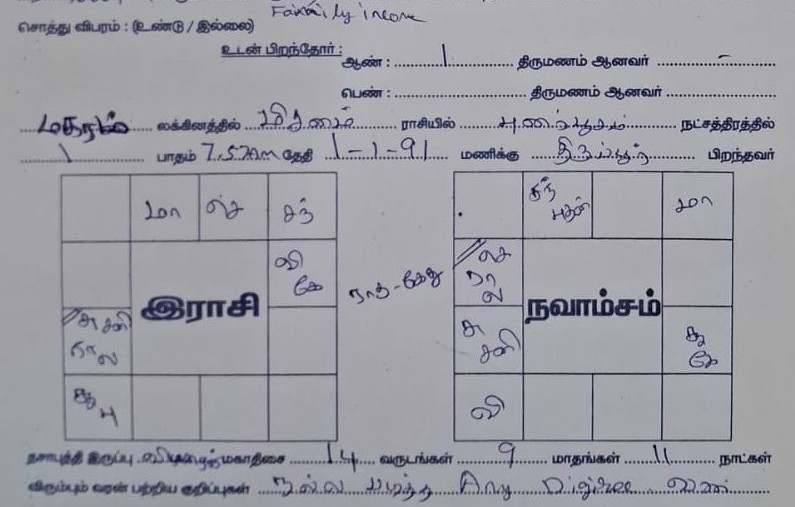 Family income
சொத்து விபரம் : (உண்டு / இல்லை)
உடன் பிறந்தோர் :
ஆண் : 1 திருமணம் ஆனவர் -
பெண் : திருமணம் ஆனவர்
மகரம் லக்கினத்தில் மிதுனம் ராசியில் புனர்பூசம் நட்சத்திரத்தில்
1 பாதம் 7.57AM தேதி 1-1-91 மணிக்கு திருப்பூர் பிறந்தவர்
மா செ சந்
வி கே
இராசி
சு சனி ரா ல
சூ பு
ராகு-கேது
சந் புதன் மா
செ ரா ல
நவாம்சம்
சு சனி
சூ கே
வி
தசாபுத்தி இருப்பு வியாழன் மகாதிசை 14 வருடங்கள் 9 மாதங்கள் 11 நாட்கள்
விரும்பும் வரன் பற்றிய குறிப்புகள் நல்ல படித்த Any degree